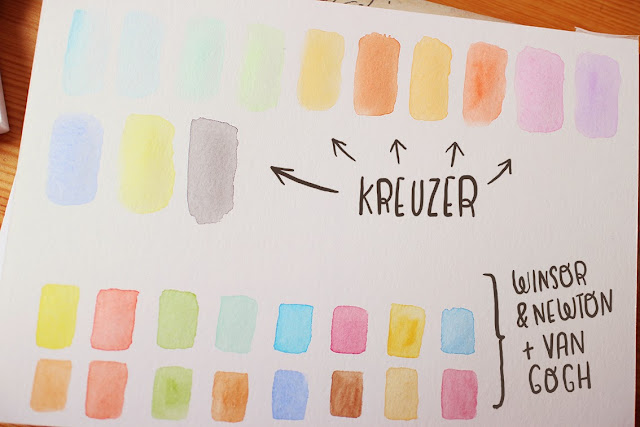 KREUZER
WINSOR
& NEWTON
+ VAN
GOGH